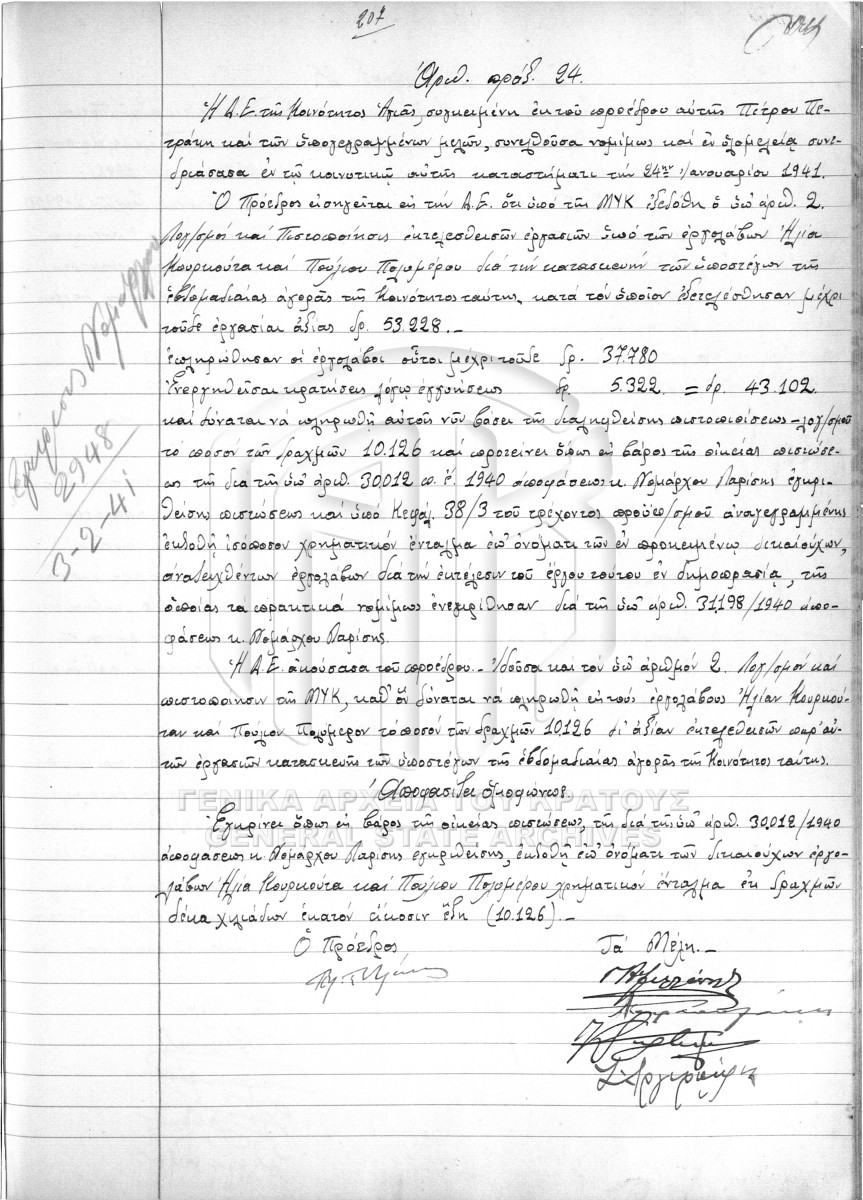 207
Ἀριθ. πράξ. 24.
Ἡ Δ.Ε. τῆς Κοινότητος Ἁγιᾶς, συγκειμένη ἐκ τοῦ προέδρου αὐτῆς Πέτρου Πε-
τράκη καὶ τῶν ὑπογεγραμμένων μελῶν, συνελθοῦσα νομίμως καὶ ἐν ὁλομελείᾳ συνε-
δριάσασα ἐν τῷ κοινοτικῷ αὐτῆς καταστήματι τὴν 24ην Ἰανουαρίου 1941.
Ὁ Πρόεδρος εἰσηγεῖται εἰς τὴν Δ.Ε. ὅτι ὑπὸ τῆς ΜΥΚ ἐξεδόθη ὁ ὑπ' ἀριθ. 2.
Λογ/σμός καὶ Πιστοποίησις ἐκτελεσθεισῶν ἐργασιῶν ὑπὸ τῶν ἐργολάβων Ἠλία
Κουρκούτα καὶ Πούλιου Πολυμέρου διὰ τὴν κατασκευὴν τῶν ὑποστέγων τῆς
ἑβδομαδιαίας ἀγορᾶς τῆς Κοινότητος ταύτης, κατὰ τὸν ὁποῖον ἐξετελέσθησαν μέχρι
τοῦδε ἐργασίαι ἀξίας δρ. 53.228.-
Ἐπληρώθησαν οἱ ἐργολάβοι οὗτοι μέχρι τοῦδε δρ. 37.780
Ἐνεργηθεῖσαι κρατήσεις λόγῳ ἐγγυήσεως δρ. 5.322 = δρ. 43.102.
καὶ δύναται νὰ πληρωθῇ αὐτοῖς νῦν βάσει τῆς διαληφθείσης πιστοποιήσεως - λογ/σμοῦ
τὸ ποσὸν τῶν δραχμῶν 10.126 καὶ προτείνει ὅπως εἰς βάρος τῆς οἰκείας πιστώσε-
ως τῆς διὰ τῆς ὑπ' ἀριθ. 30.012 π. ἔ. 1940 ἀποφάσεως κ. Νομάρχου Λαρίσης ἐγκρι-
θείσης πιστώσεως καὶ ὑπὸ Κεφάλ. 38/3 τοῦ τρέχοντος προϋπ/σμοῦ ἀναγεγραμμένης
ἐκδοθῇ ἰσόποσον χρηματικόν ἔνταλμα ἐπ' ὀνόματι τῶν ἐν προκειμένῳ δικαιούχων,
ἀναδειχθέντων ἐργολάβων διὰ τὴν ἐκτέλεσιν τοῦ ἔργου τούτου ἐν δημοπρασίᾳ, τῆς
ὁποίας τα πρακτικά νομίμως ἐνεκρίθησαν διὰ τῆς ὑπ' ἀριθ. 31.198/1940 ἀπο-
φάσεως κ. Νομάρχου Λαρίσης.
Ἡ Δ.Ε. ἀκούσασα τοῦ προέδρου.- Ἰδοῦσα καὶ τὸν ὑπ' ἀριθμόν 2. Λογ/σμόν καὶ
πιστοποίησιν τῆς ΜΥΚ, καθ' ὅν δύναται νὰ πληρωθῇ εἰς τοὺς ἐργολάβους Ἠλίαν Κουρκού-
ταν καὶ Πούλιον Πολύμερον τὸ ποσὸν τῶν δραχμῶν 10.126 δι' ἀξίαν ἐκτελεσθεισῶν παρ' αὐ-
τῶν ἐργασιῶν κατασκευῆς τῶν ὑποστέγων τῆς ἑβδομαδιαίας ἀγορᾶς τῆς Κοινότητος ταύτης.
Ἀποφασίζει ὁμοφώνως.
Ἐγκρίνει ὅπως εἰς βάρος τῆς οἰκείας πιστώσεως, τῆς διὰ τῆς ὑπ' ἀριθ. 30.012/1940
ἀποφάσεως κ. Νομάρχου Λαρίσης ἐγκριθείσης, ἐκδοθῇ ἐπ' ὀνόματι τῶν δικαιούχων ἐργο-
λάβων Ἠλία Κουρκούτα καὶ Πούλιου Πολυμέρου χρηματικόν ἔνταλμα ἐκ δραχμῶν
δέκα χιλιάδων ἑκατόν εἴκοσιν ἕξη (10.126).-
Ὁ Πρόεδρος
Τὰ Μέλη.-
Ἐγκρίσεις Νομάρχου
2948
3-2-41
ΓΕΝΙΚΑ ΑΡΧΕΙΑ ΤΟΥ ΚΡΑΤΟΥΣ
GENERAL STATE ARCHIVES